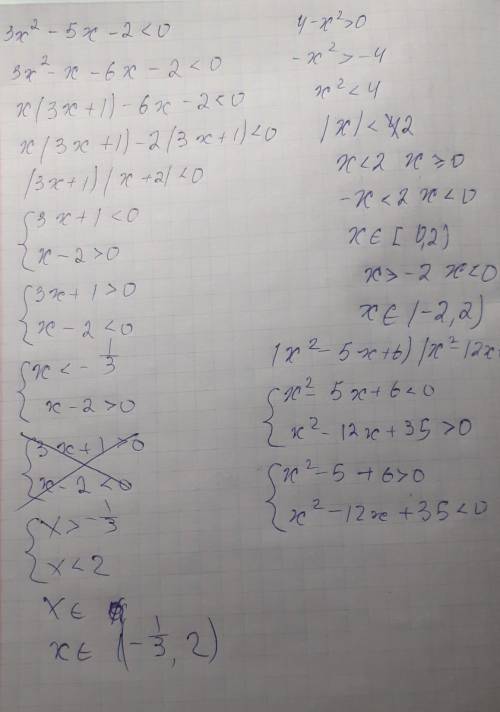 3x² - 5x - 2 < 0
3x² - x - 6x - 2 < 0
x(3x+1) - 6x - 2 < 0
x(3x+1) - 2(3x+1) < 0
(3x+1)(x+2) < 0
{ 3x+1 < 0
x - 2 > 0
{ 3x+1 > 0
x - 2 < 0
{ x < - 1/3
x - 2 > 0
{ 3x+1 > 0
x - 2 < 0
{ x > - 1/3
x < 2
x ∈
x ∈ (- 1/3, 2)
4 - x² > 0
- x² > -4
x² < 4
|x| < 2
x < 2 x ≥ 0
-x < 2 x < 0
x ∈ [0,2)
x > -2 x < 0
x ∈ (-2, 2)
(x² - 5x + 6)(x² - 12x
{ x² - 5x + 6 < 0
x² - 12x + 35 > 0
{ x² - 5 + 6 > 0
x² - 12x + 35 < 0